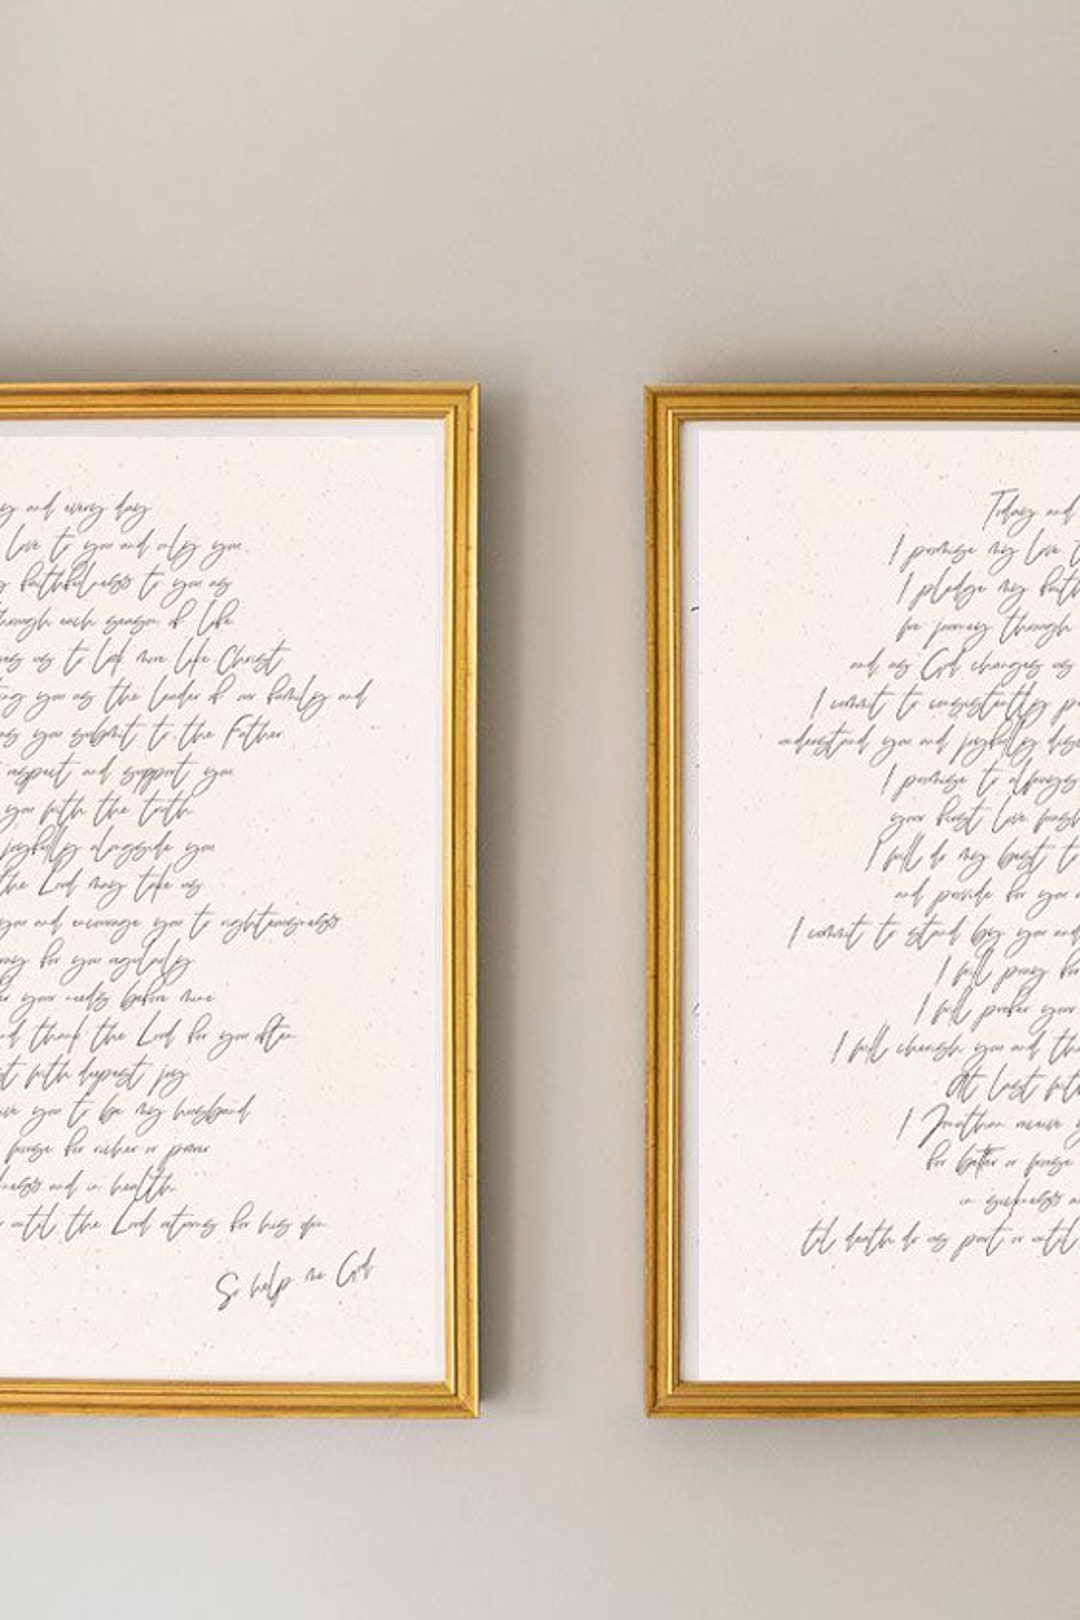 and every day
love to you and only you
faithfulness to you as
through each season of life
us to look more like Christ
you as the leader of our family and
as you submit to the Father
respect and support you
you with the truth
joyfully alongside you
the Lord may take us
you and encourage you to righteousness
for you regularly
your needs before mine
and thank the Lord for you often
with deepest joy
you to be my husband
worse for richer or poorer
and in health
until the Lord returns for his own
So help me God
Today and
I promise my love
I pledge my
we journey through
and as God changes us
I commit to consistently
understand you and joyfully
I promise to always
your first love
I will do my best to
and provide for you
I commit to stand by you and
I will pray for
I will prefer your
I will cherish you and
At last
I Jonathan receive
for better or worse
in sickness
til death do us part or until